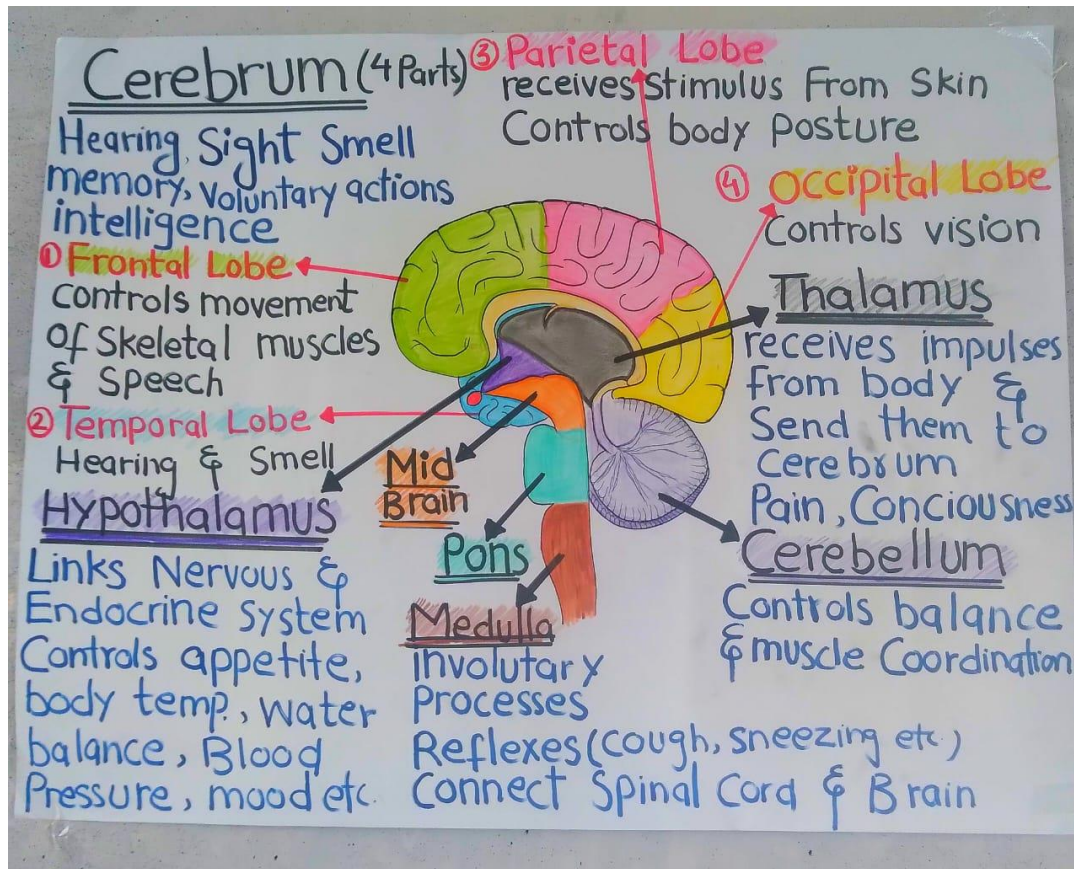 Cerebrum (4 Parts)
Hearing, Sight Smell
memory, Voluntary actions
intelligence
① Frontal Lobe
Controls movement
Of Skeletal muscles
& Speech
② Temporal Lobe
Hearing & Smell
③ Parietal Lobe
receives Stimulus From Skin
Controls body Posture
④ Occipital Lobe
Controls vision
Thalamus
receives impulses
From body &
Send them to
Cerebrum
Pain, Conciousness
Hypothalamus
Links Nervous &
Endocrine System
Controls appetite,
body temp., Water
balance, Blood
Pressure, mood etc.
Mid
Brain
Pons
Medulla
involutary
Processes
Reflexes (Cough, sneezing etc.)
Connect Spinal Cord & Brain
Cerebellum
Controls balance
& muscle Coordination